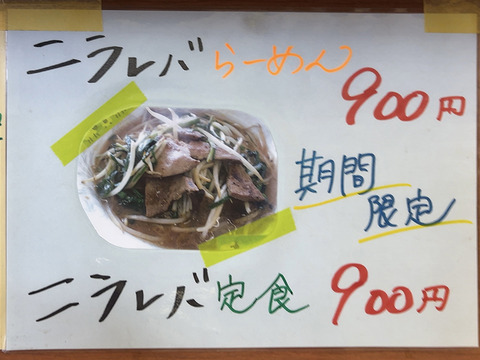 ニラレバらーめん
900円
期間
限定
ニラレバ定食 900円